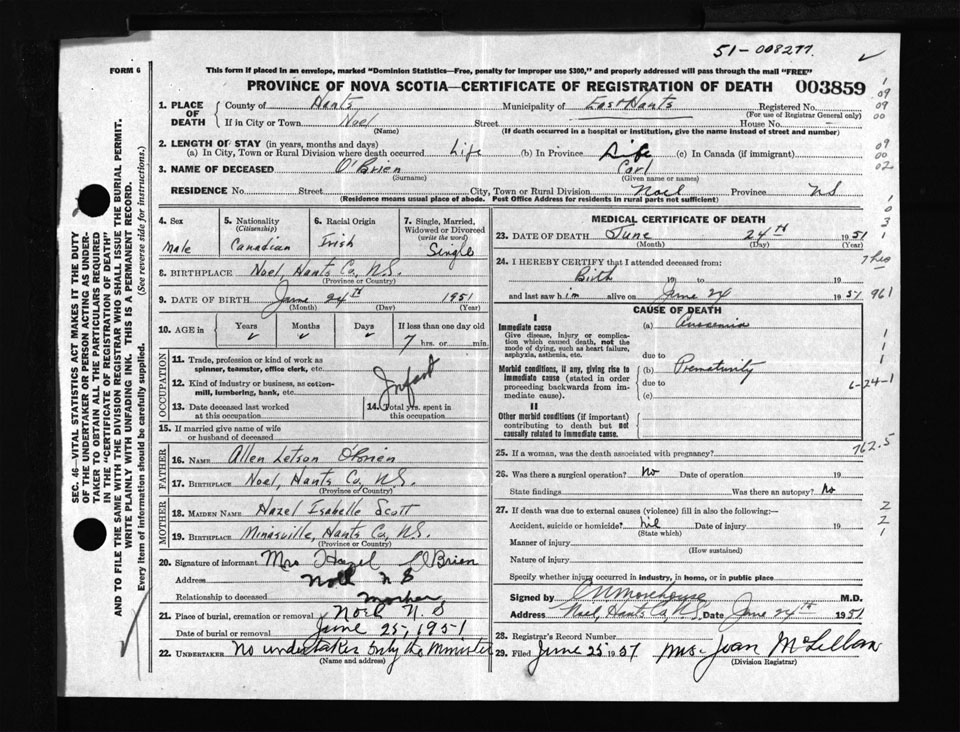 51-008277
FORM 6
This form if placed in an envelope, marked "Dominion Statistics—Free, penalty for improper use $300," and properly addressed will pass through the mail "FREE"
PROVINCE OF NOVA SCOTIA—CERTIFICATE OF REGISTRATION OF DEATH 003859
1. PLACE OF DEATH
County of Hants Municipality of East Hants Registered No.
(For use of Registrar General only)
If in City or Town Noel Street House No. -
(Name) (If death occurred in a hospital or institution, give the name instead of street and number)
2. LENGTH OF STAY (in years, months and days)
(a) In City, Town or Rural Division where death occurred Life (b) In Province Life (c) In Canada (if immigrant)
3. NAME OF DECEASED O'Brien Carl
(Surname) (Given name or names)
RESIDENCE No. Street City, Town or Rural Division Noel Province N S
(Residence means usual place of abode. Post Office Address for residents in rural parts not sufficient)
4. Sex Male
5. Nationality (Citizenship) Canadian
6. Racial Origin Irish
7. Single, Married, Widowed or Divorced (write the word) Single
8. BIRTHPLACE Noel, Hants Co, N.S.
(Province or Country)
9. DATE OF BIRTH June 24th 1951
(Month) (Day) (Year)
10. AGE in Years Months Days If less than one day old
7 hrs. or min.
OCCUPATION
11. Trade, profession or kind of work as spinner, teamster, office clerk, etc.
Infant
12. Kind of industry or business, as cotton-mill, lumbering, bank, etc.
13. Date deceased last worked at this occupation
14. Total yrs. spent in this occupation
15. If married give name of wife or husband of deceased
FATHER
16. NAME Allen Letson O'Brien
17. BIRTHPLACE Noel, Hants Co, N.S.
(Province or Country)
MOTHER
18. MAIDEN NAME Hazel Isabelle Scott
19. BIRTHPLACE Minasville, Hants Co, N.S.
(Province or Country)
20. Signature of informant Mrs Hazel O'Brien
Address Noel N S
Relationship to deceased mother
21. Place of burial, cremation or removal Noel N. S
Date of burial or removal June 25, 1951
22. UNDERTAKER No undertaker only the Minister
(Name and address)
MEDICAL CERTIFICATE OF DEATH
23. DATE OF DEATH June 24th 1951
(Month) (Day) (Year)
24. I HEREBY CERTIFY that I attended deceased from:
Birth 19 to 19
and last saw him alive on June 24 1951
CAUSE OF DEATH
I
Immediate cause
Give disease, injury or complication which caused death, not the mode of dying, such as heart failure, asphyxia, asthenia, etc.
(a)
due to
Morbid conditions, if any, giving rise to immediate cause (stated in order proceeding backwards from immediate cause).
(b) Prematurity
due to
(c)
II
Other morbid conditions (if important) contributing to death but not causally related to immediate cause.
25. If a woman, was the death associated with pregnancy?
26. Was there a surgical operation? No Date of operation 19
State findings Was there an autopsy? No
27. If death was due to external causes (violence) fill in also the following:—
Accident, suicide or homicide? nil Date of injury 19
(State which)
Manner of injury
(How sustained)
Nature of injury
Specify whether injury occurred in industry, in home, or in public place
Signed by Morehouse M.D.
Address Noel, Hants Co, N.S. Date June 24th 1951
28. Registrar's Record Number
29. Filed June 25 1951 Mrs. Joan McLellan
(Division Registrar)
1
09
09
00
09
00
02
1
0
3
1
7 hrs
961
1
1
1
1
6-24-1
762.5
2
2
1
SEC. 46—VITAL STATISTICS ACT MAKES IT THE DUTY
OF THE UNDERTAKER OR PERSON ACTING AS UNDER-
TAKER TO OBTAIN ALL THE PARTICULARS REQUIRED
IN THE "CERTIFICATE OF REGISTRATION OF DEATH"
AND TO FILE THE SAME WITH THE DIVISION REGISTRAR WHO SHALL ISSUE THE BURIAL PERMIT.
WRITE PLAINLY WITH UNFADING INK. THIS IS A PERMANENT RECORD.
Every item of information should be carefully supplied. (See reverse side for instructions.)